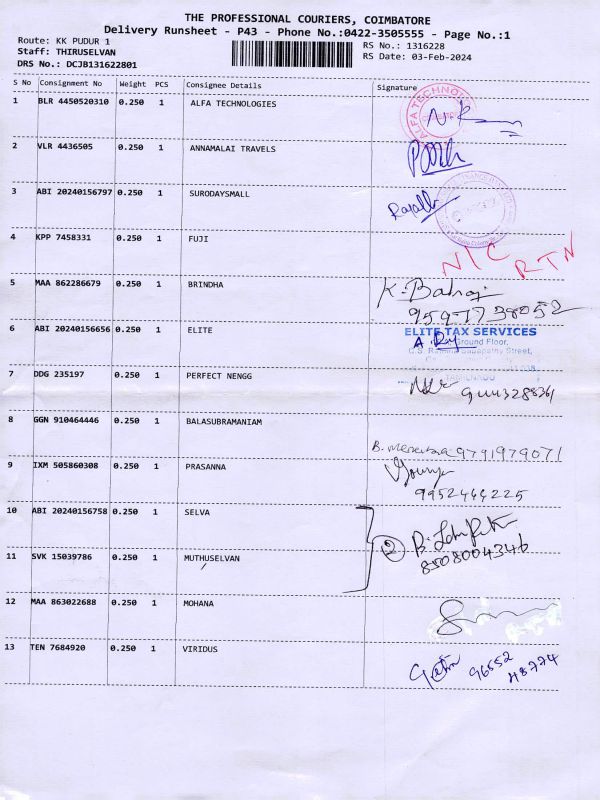 THE PROFESSIONAL COURIERS, COIMBATORE
Delivery Runsheet - P43 - Phone No.:0422-3505555 - Page No.:1
Route: KK PUDUR 1
Staff: THIRUSELVAN
DRS No.: DCJB131622801
RS No.: 1316228
RS Date: 03-Feb-2024
S No Consignment No Weight PCS Consignee Details Signature
1 BLR 4450520310 0.250 1 ALFA TECHNOLOGIES
2 VLR 4436505 0.250 1 ANNAMALAI TRAVELS
3 ABI 20240156797 0.250 1 SURODAYSMALL
4 KPP 7458331 0.250 1 FUJI
N/C RTN
5 MAA 862286679 0.250 1 BRINDHA
9597738052
6 ABI 20240156656 0.250 1 ELITE
ELITE TAX SERVICES
Ground Floor,
7 DDG 235197 0.250 1 PERFECT NENGG
8 GGN 910464446 0.250 1 BALASUBRAMANIAM
9791979071
9 IXM 505860308 0.250 1 PRASANNA
9952464225
10 ABI 20240156758 0.250 1 SELVA
2
8508004346
11 SVK 15039786 0.250 1 MUTHUSELVAN
12 MAA 863022688 0.250 1 MOHANA
13 TEN 7684920 0.250 1 VIRIDUS
96552
48774